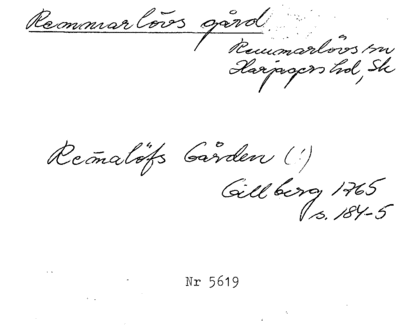 Remmarlövs gård
Remmarlövs sn
Harjagers hd, Sk
Rem̄alöfs Gården (!)
Gillberg 1765
s. 184-5
Nr 5619